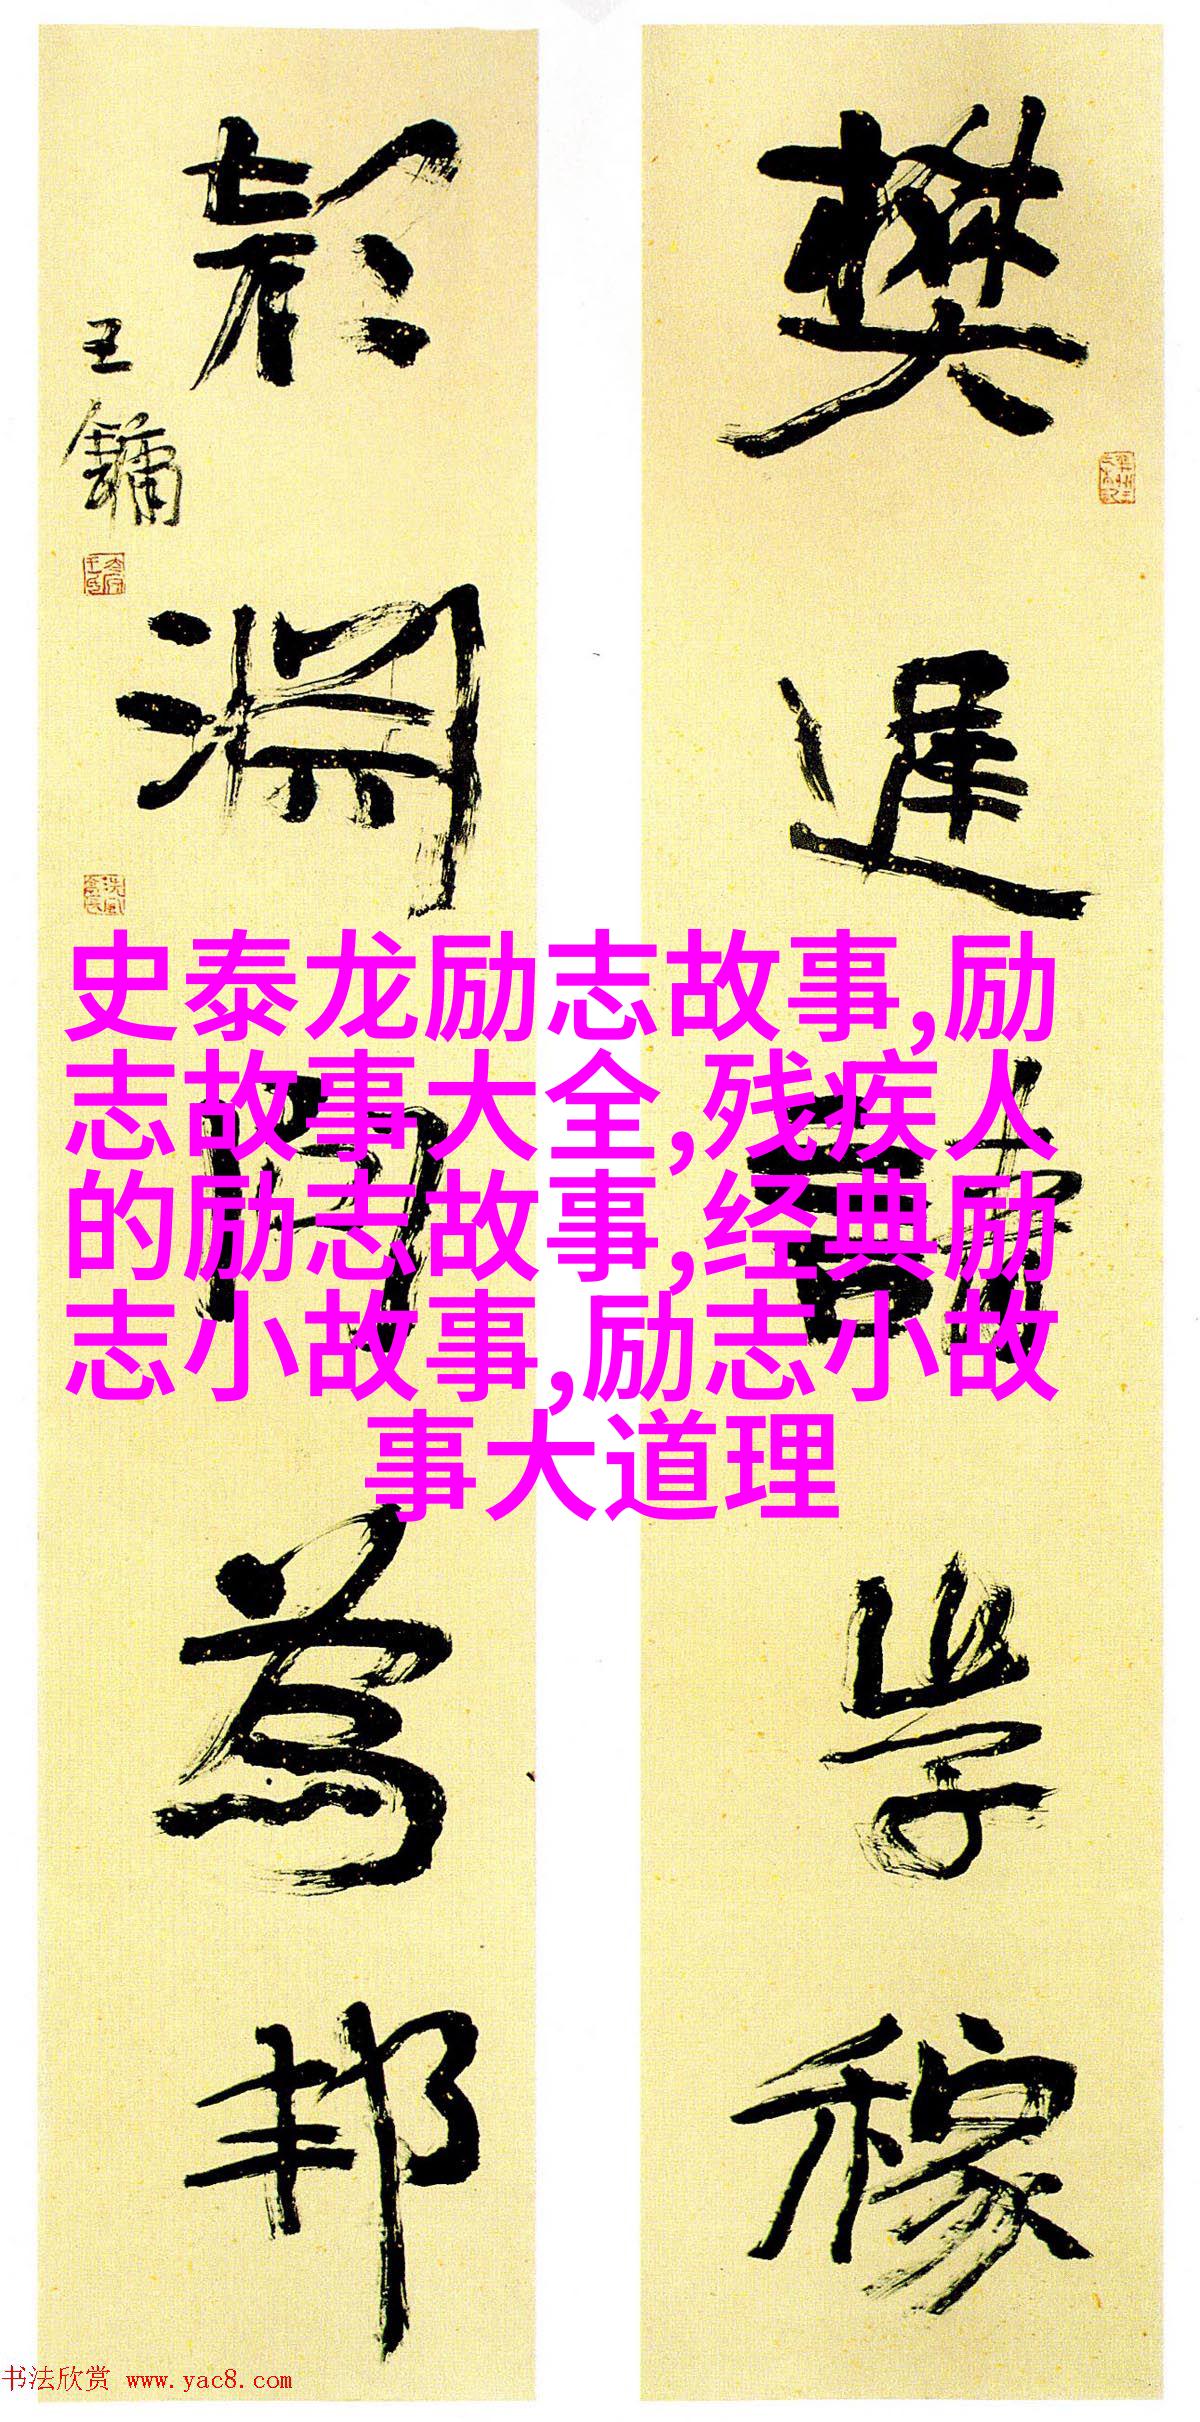 樊遲請學稼
顔淵問為邦
王鏞
史泰龙励志故事,励
志故事大全,残疾人
的励志故事,经典励
志小故事,励志小故
事大道理
书法欣赏 www.yac8.com